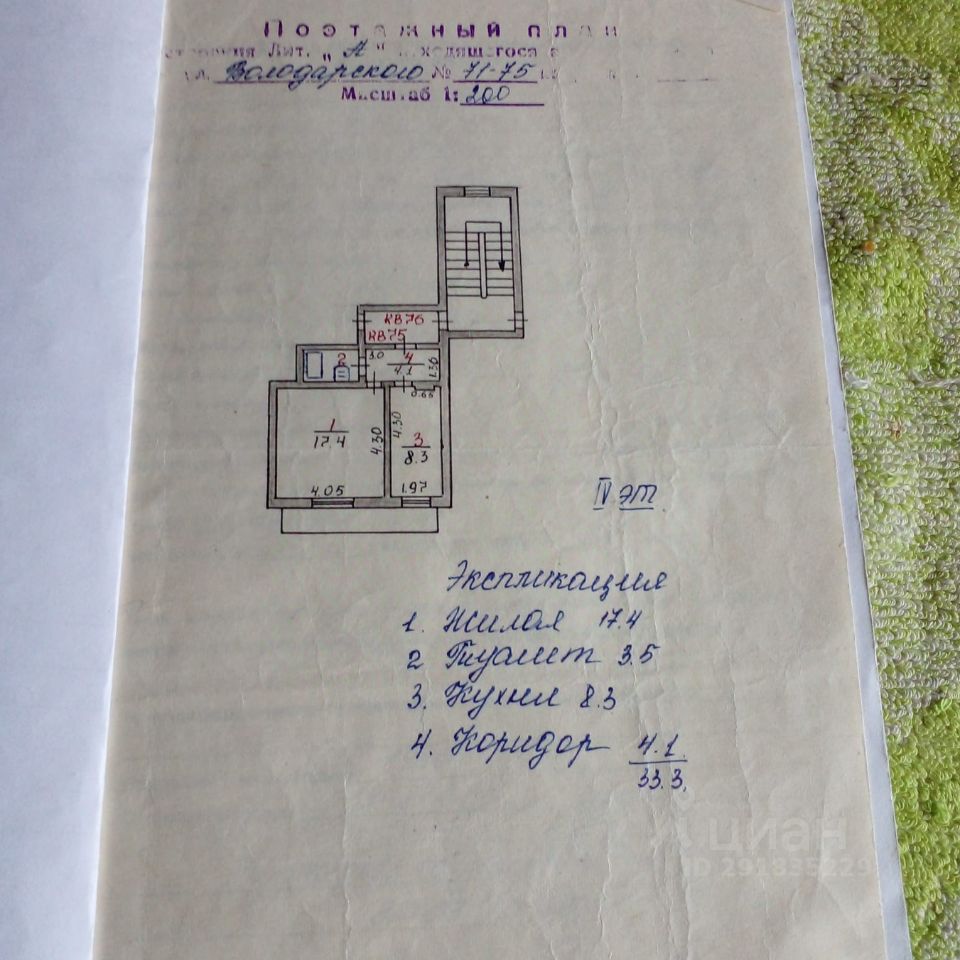 Поэтажный план
строения Лит. „А“ находящегося в
ул. Володарского № 71-75
Масштаб 1: 200
КВ76
КВ75
2
3.0
4
4.1
1.36
0.65
1
17.4
4.30
4.30
3
8.3
4.05
1.97
IV эт.
Экспликация
1. Жилая 17.4
2 Туалет 3.5
3. Кухня 8.3
4. Коридор 4.1
33.3.
циан
ID 291835229